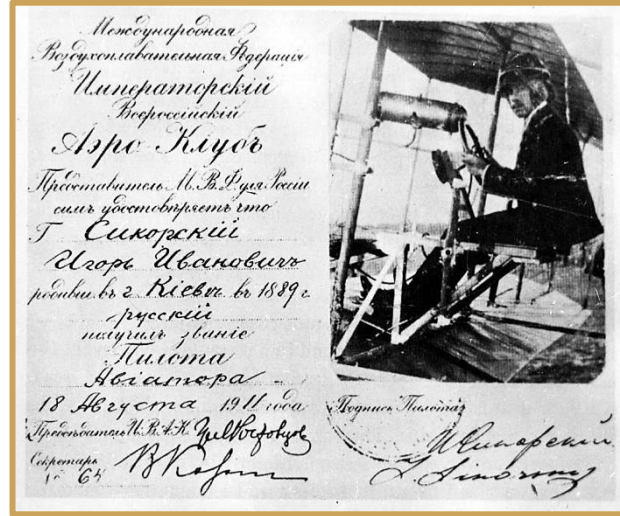 Международная
Воздухоплавательная Федерація
Императорскій
Всероссійскій
Аэро-Клубъ
Представитель М. В. Ф. для Россіи
симъ удостовѣряетъ что
Г Сикорскій
Игорь Ивановичъ
родивш. въ г. Кіевѣ въ 1889 г
русскій
получилъ званіе
Пилота
Авіатора
18 Августа 1911 года
Предсѣдатель И. В. А. К.
Секретарь
№ 64
Подпись Пилота:
И Сикорскій